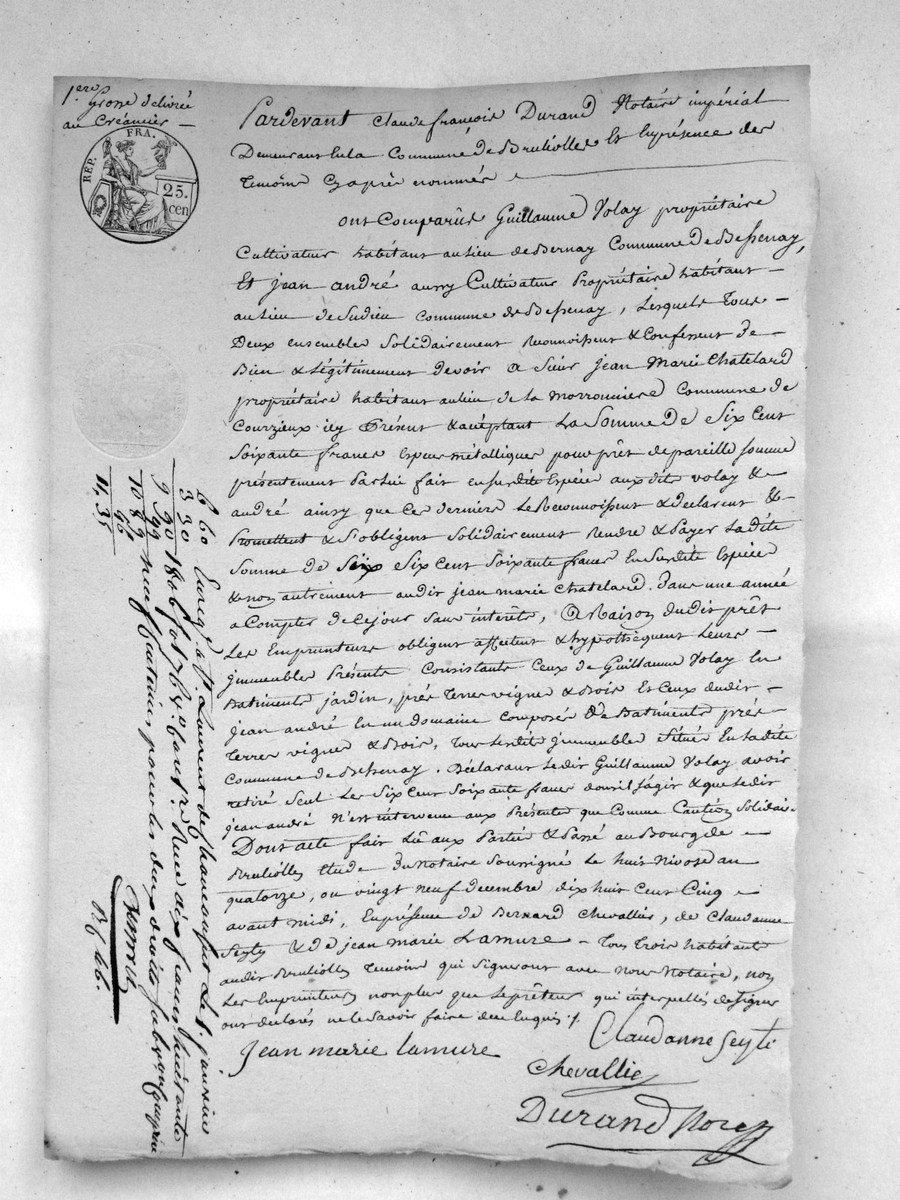 1.ere Grosse delivrée
au Créancier —
REP. FRA.
25.
cen
Pardevant Claude françois Durand Notaire impérial
Demeurant En la Commune de Brulliolles Et En présence des
temoins Cy après nommés
ont Comparûs Guillaume Volay propriétaire
Cultivateur habitant au lieu de Bernay Commune de Bessenay,
Et jean andré aussy Cultivateur Propriétaire habitant —
au lieu de Sudieu Commune de Bessenay, Lesquels Tous —
Deux ensembles Solidairement Reconnoissent & Confessent de
Bien & Légitimement devoir a Sieur Jean Marie Chatelard
propriétaire habitant au lieu de la Morronniere Commune de
Courzieux icy Présent & acéptant La Somme De Six Cent
Soixante francs Espece métallique pour prêt de pareille somme
présentement Par lui fait en susdite Espèce aux dits Volay &
andré ainsy que Ces derniers Le Reconnoissent & déclarent &
Promettent & s'obligent Solidairement Rendre & Payer La dite
Somme de Six Six Cent Soixante francs En Susdite Espèce
& non autrement audit jean marie Chatelard. Dans une année
a Compter de Ce jour Sans interêts, A Raison dudit prêt
Les Emprunteurs obligent affectent & hypothèquent Leurs —
jmmeubles Présents Consistants Ceux de Guillaume Volay En
Batiments jardin, près Terres vigne & Bois Et Ceux dudit —
jean andré En un domaine Composé De Batiments près
Terres vignes & Bois, Tous Lesdits jmmeubles Situés En La dite
Commune de Bessenay. Déclarant Ledit Guillaume Volay avoir
retiré Seul Les Six Cent Soixante francs dont il s'agit & que Ledit
jean andré n'est intervenu aux Présentes que Comme Caution Solidaire.
Dont acte fait Lû aux Parties & Passé au Bourg de —
Brulliolles Etude du Notaire Soussigné Le huit Nivose an
quatorze, ou vingt neuf décembre dix huit Cent Cinq —
avant midi, En présence de Bernard Chevallier, de Claudanne
Seyte & de jean marie Lamure — Tous trois habitant
audit Brulliolles Temoins qui Signeront avec Nous Notaire, non
Les Emprunteurs non plus que Le prêteur qui interpellés de Signer
ont déclarés ne le Savoir faire de ce Enquis ./.
Claudanne Seyte
Jean marie lamure
Chevallier
Durand Nore
660
330
9 90
99
10 89
96
11,35
Enreg. a St. Laurent de Chamousset le 1. janvier
1806 fol. 76 Vo. Case 2 Reçu dix francs huitante
neuf Centimes pour les deux droits subvention Comprise